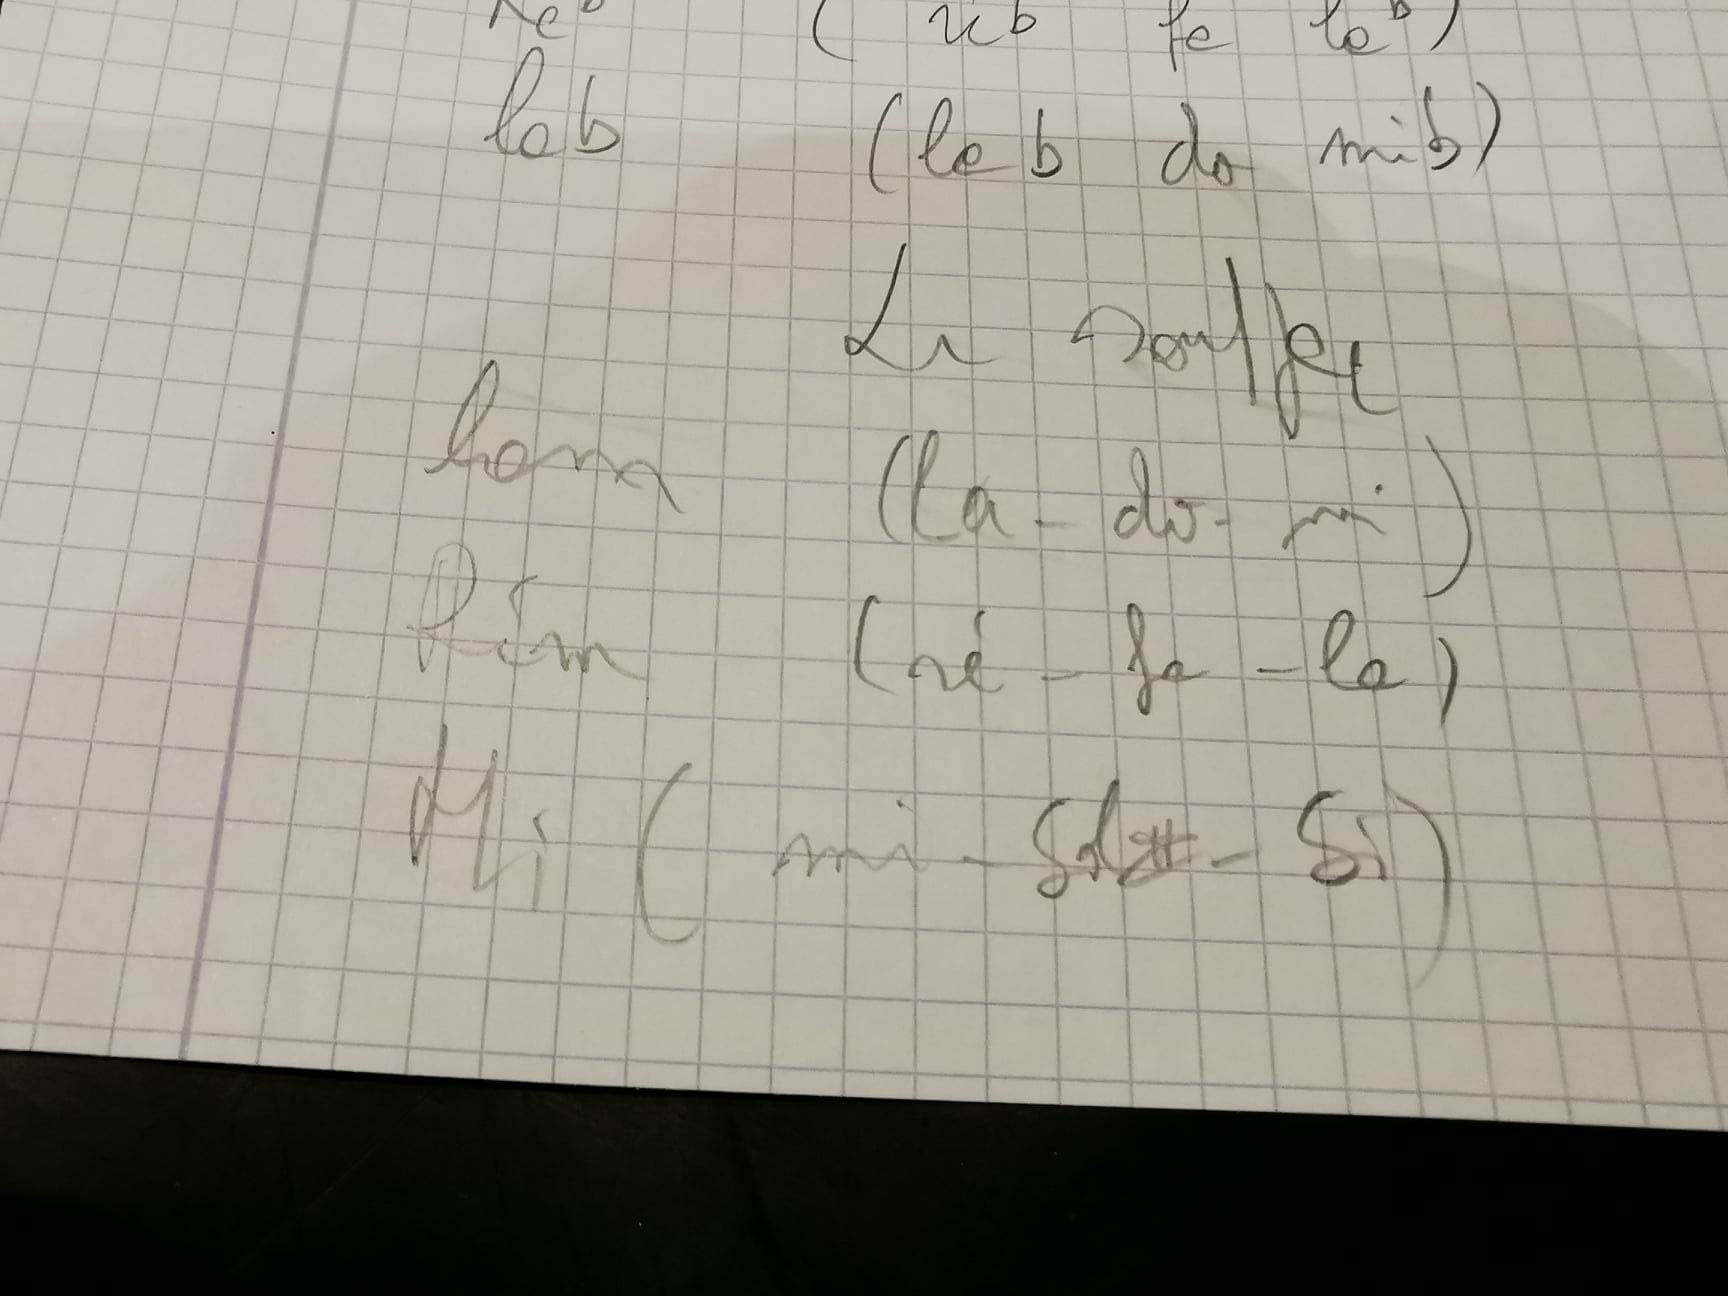 Réb (réb fa lab)
lab (lab do mib)
La
lam (la - do - mi)
Rém (ré - fa - la)
Mi (mi - Sol# - Si)